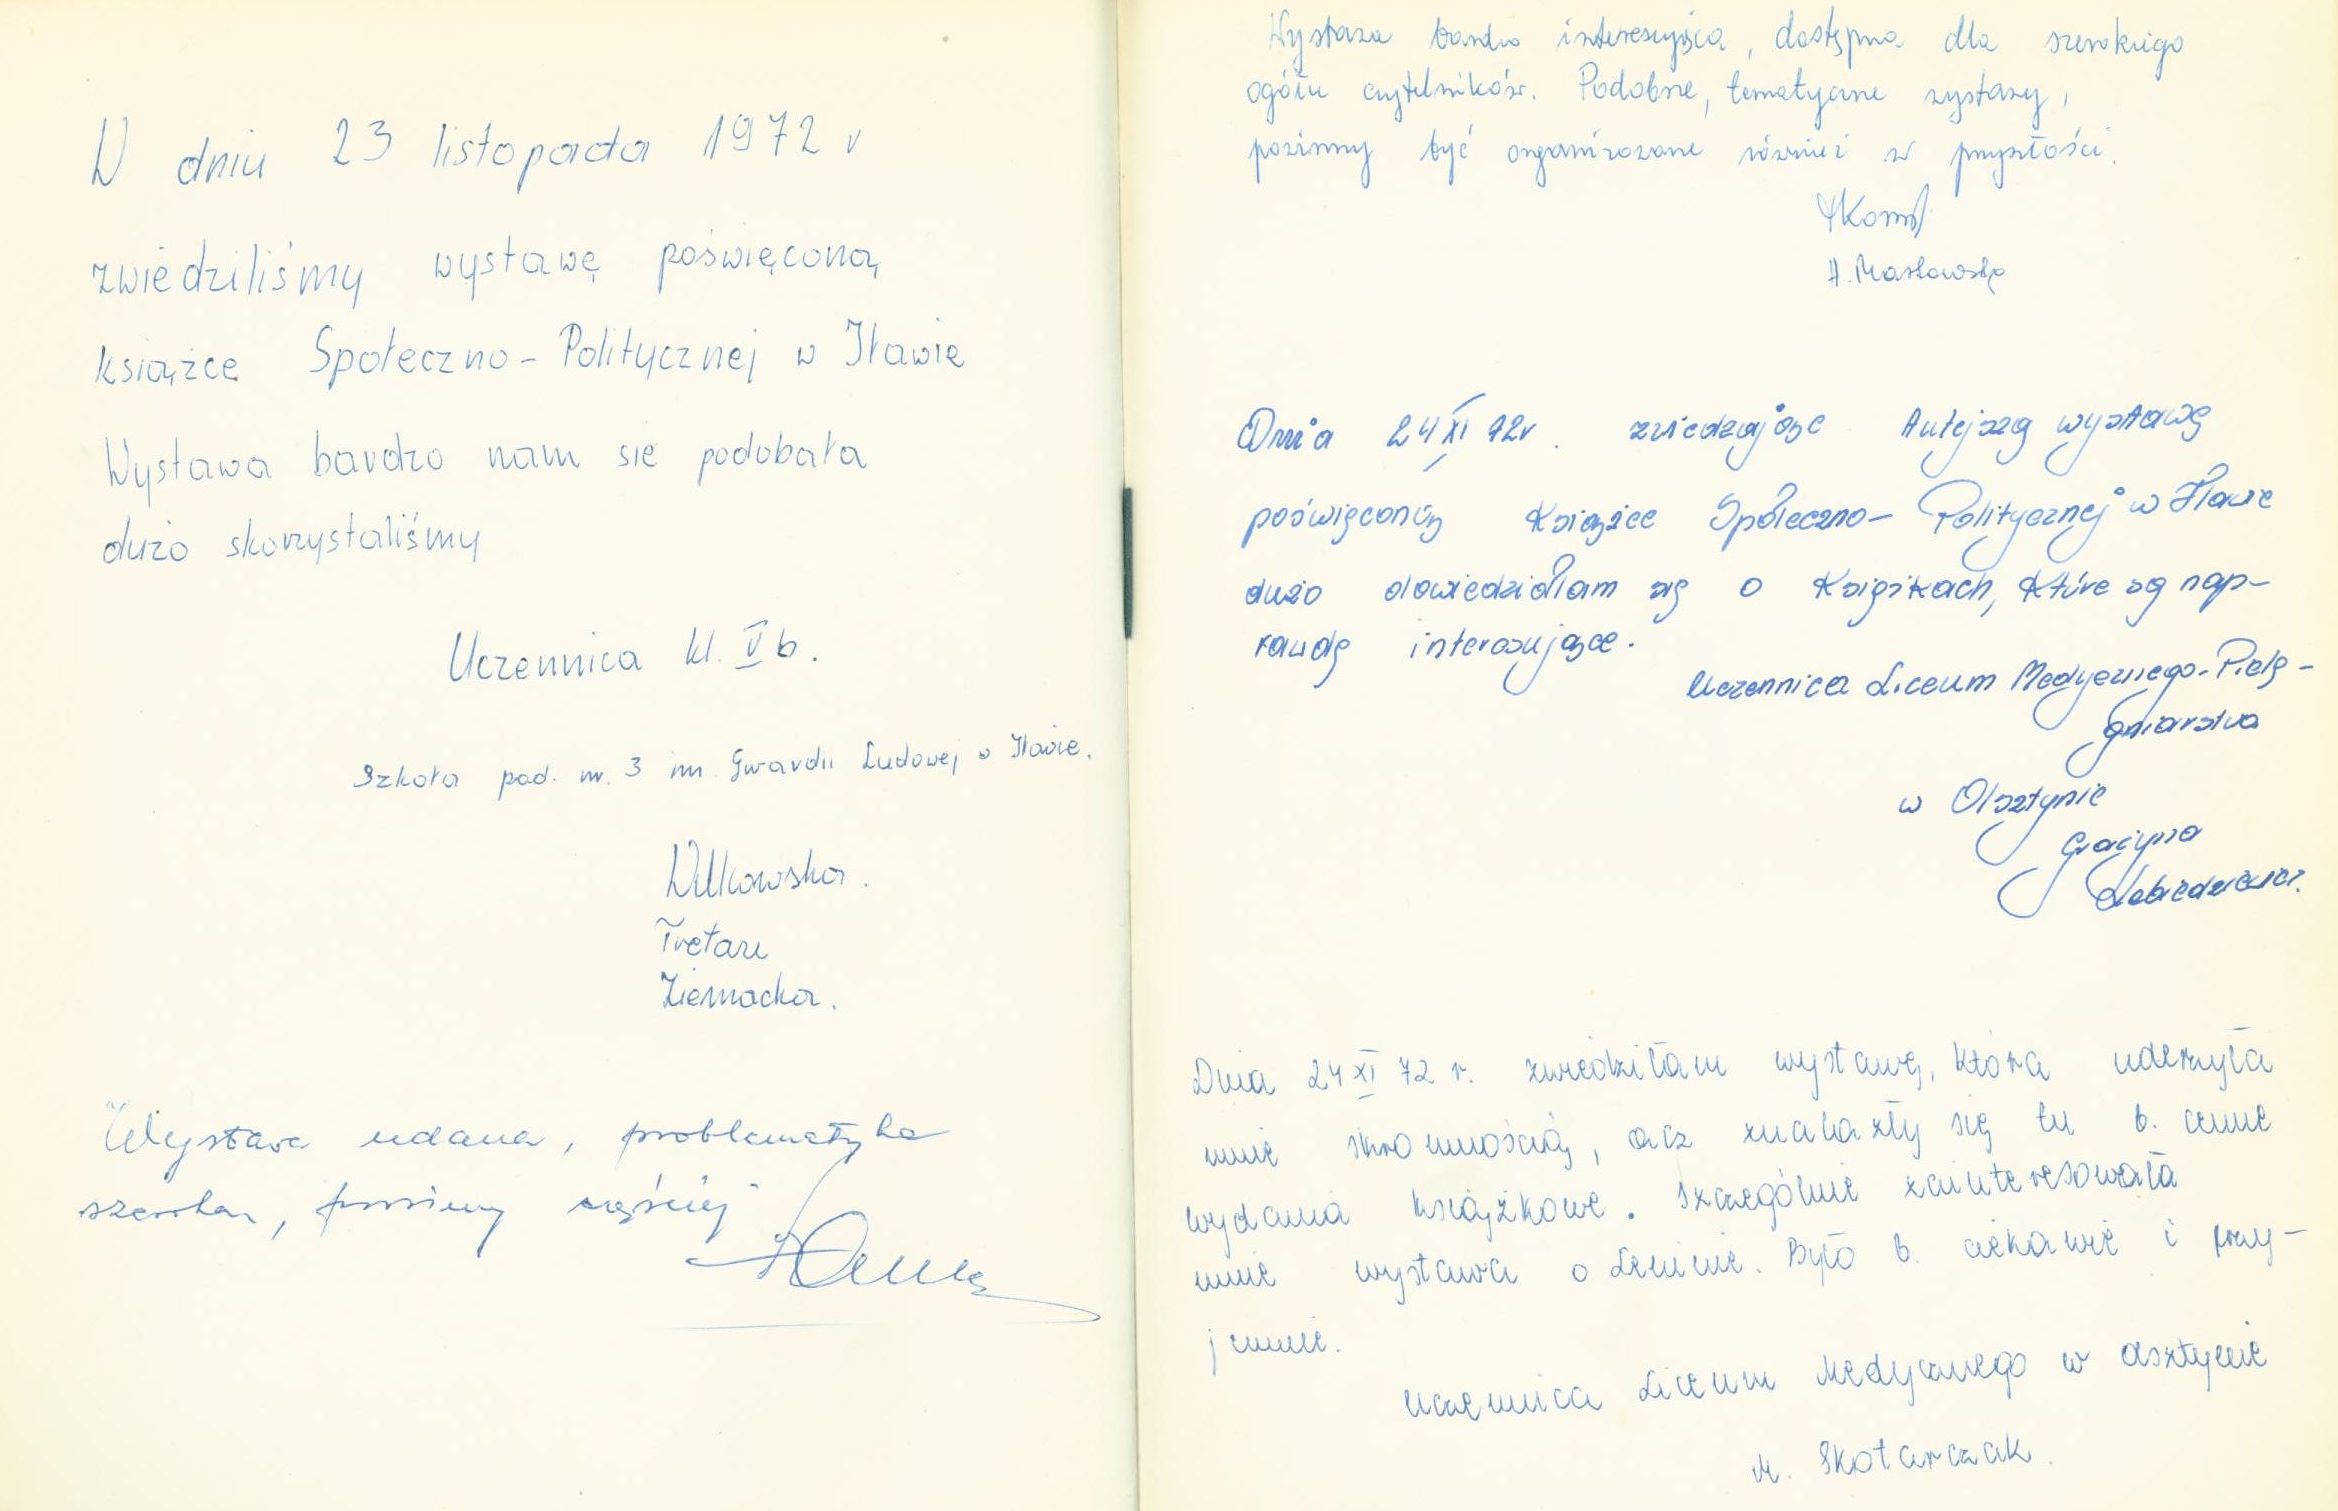 W dniu 23 listopada 1972 r
zwiedziliśmy wystawę poświęconą
książce Społeczno-Politycznej w Iławie
Wystawa bardzo nam sie podobała
dużo skorzystaliśmy
Uczennica kl. Vb.
Szkoła pod. nr. 3 im. Gwardii Ludowej w Iławie.
Wilkowska.
Ziemacka.
Wystawa udana, problematyka
szeroka, prosimy częściej
Wystawa bardzo interesująca, dostępna dla szerokiego
ogółu czytelników. Podobne, tematyczne wystawy,
powinny być organizowane również w przyszłości.
H. Masłowska
Dnia 24 XI 72r. zwiedzając tutejszą wystawę
poświęconą Książce Społeczno-Politycznej w Iławie
dużo dowiedziałam się o Książkach, które są nap-
rawdę interesujące.
Uczennica Liceum Medycznego-Pielę-
gniarstwa
w Olsztynie
Grażyna
Lebiedziewicz.
Dnia 24 XI 72 r. zwiedziłam wystawę, która uderzyła
mnie skromnością, acz znalazły się tu b. cenne
wydania książkowe. Szczególnie zainteresowała
mnie wystawa o Leninie. Było b. ciekawie i przy-
jemnie.
uczennica Liceum Medycznego w Olsztynie
M. Skotarczak.